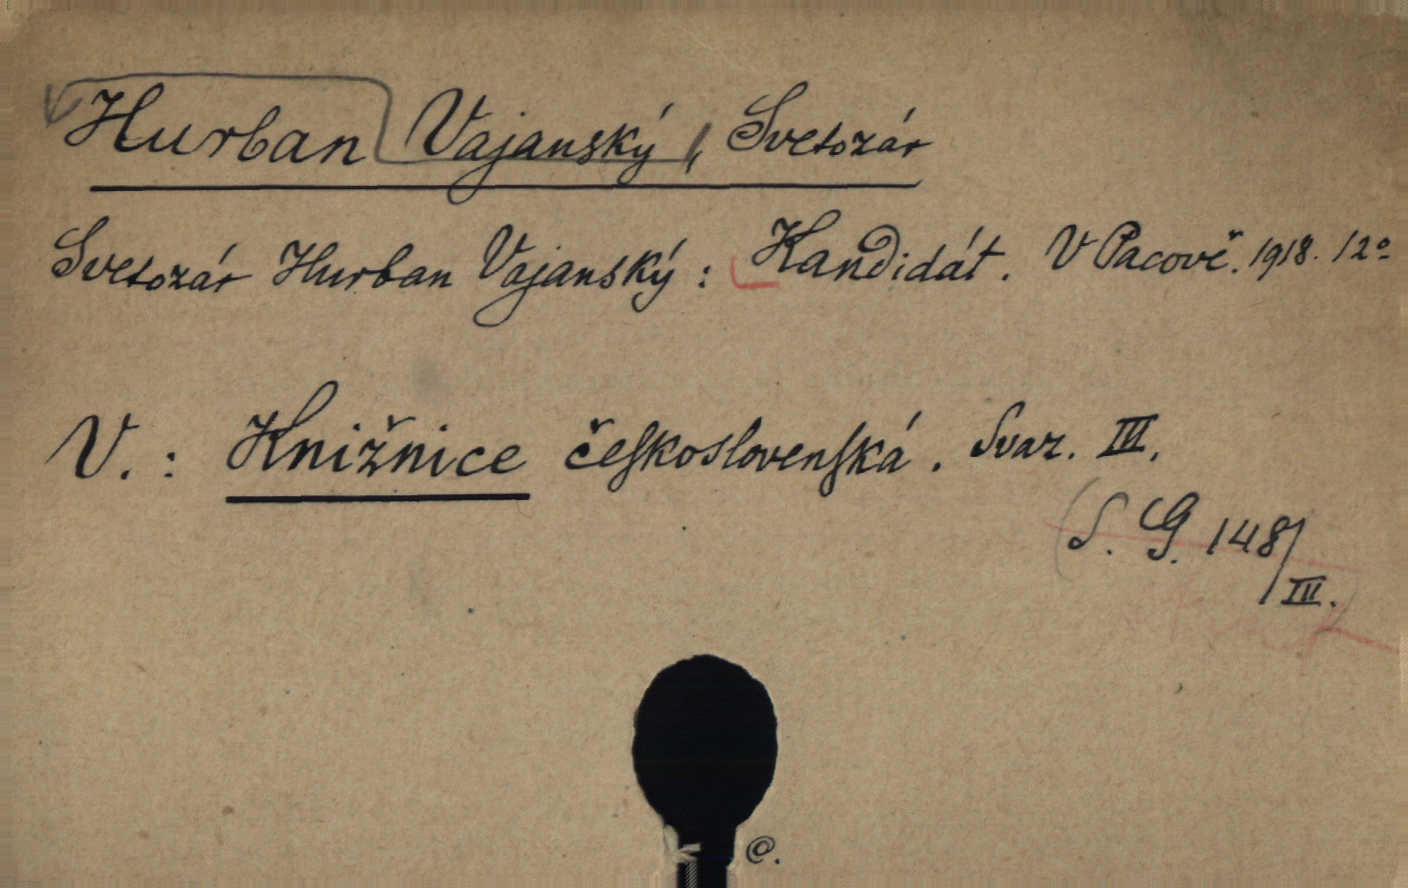 Hurban Vajanský, Svetozár
Svetozár Hurban Vajanský: Kandidát. V Pacově. 1918. 12º
V.: Knižnice československá. Svaz. III.
(S. G. 148/
III.)
@.